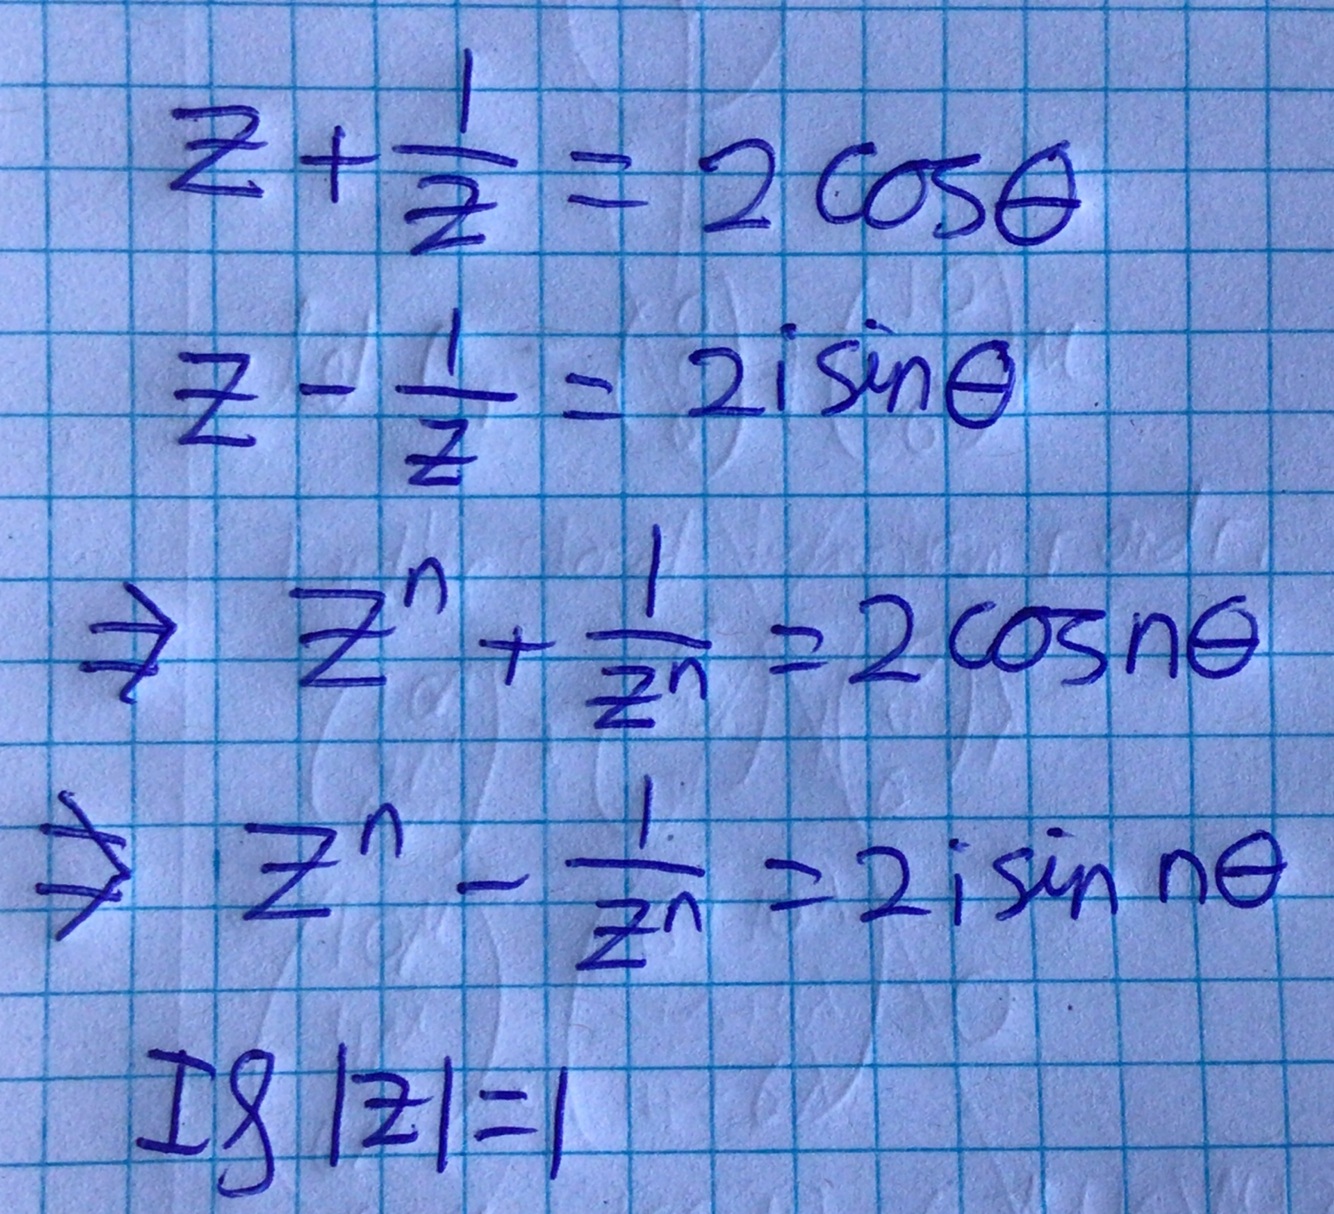 z + 1/z = 2 cosθ
z - 1/z = 2 i sinθ
⇒ z^n + 1/z^n = 2 cos nθ
⇒ z^n - 1/z^n = 2 i sin nθ
If |z| = 1